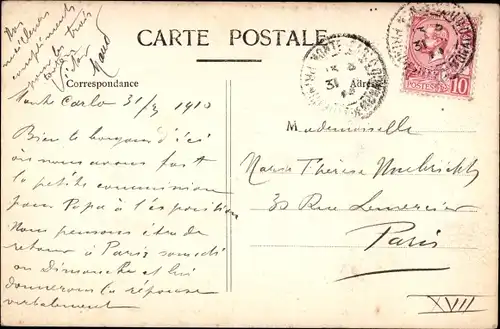 Nos
meilleurs
compliments
pour les trois
Maud
CARTE POSTALE
Correspondance
Monte Carlo 31/3 1910
Bien le bonjour d'ici
où nous avons fait
la petite commission
pour Papa à l'exposition
Nous pensons être de
retour à Paris samedi
ou Dimanche et lui
donnerons la réponse
verbalement
MONTE-CARLO
31
POSTES
10
Mademoiselle
Marie Thérèse
30 Rue Lemercier
Paris
XVII